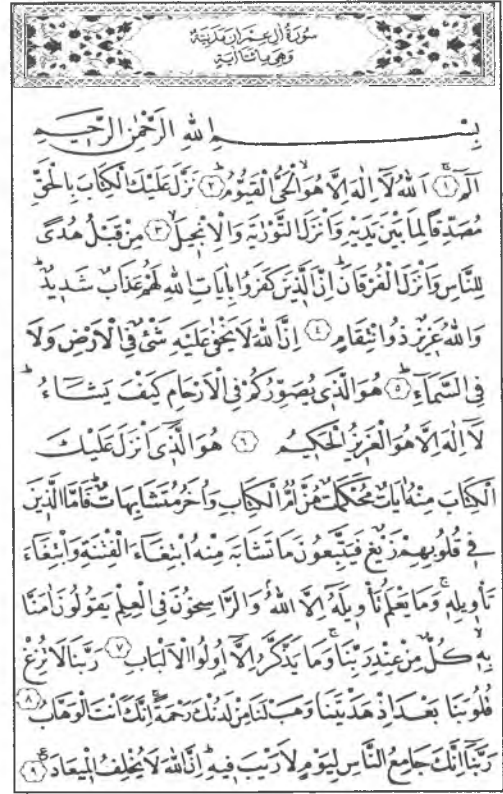 سُورَةُ اٰلِ عِمْرَانَ مَدَنِيَّةٌ
وَهِيَ مِائَتَا اٰيَةٍ
بِسْمِ اللهِ الرَّحْمٰنِ الرَّحِيمِ
الٓمٓ ﴿١﴾ اَللهُ لَٓا اِلٰهَ اِلَّا هُوَ الْحَيُّ الْقَيُّومُ ﴿٢﴾ نَزَّلَ عَلَيْكَ الْكِتَابَ بِالْحَقِّ
مُصَدِّقًا لِمَا بَيْنَ يَدَيْهِ وَاَنْزَلَ التَّوْرٰيةَ وَالْاِنْجِيلَ ﴿٣﴾ مِنْ قَبْلُ هُدًى
لِلنَّاسِ وَاَنْزَلَ الْفُرْقَانَ اِنَّ الَّذِينَ كَفَرُوا بِاٰيَاتِ اللهِ لَهُمْ عَذَابٌ شَدِيدٌ
وَاللهُ عَزِيزٌ ذُو انْتِقَامٍ ﴿٤﴾ اِنَّ اللهَ لَا يَخْفٰى عَلَيْهِ شَيْءٌ فِي الْاَرْضِ وَلَا
فِي السَّمَٓاءِ ﴿٥﴾ هُوَ الَّذِي يُصَوِّرُكُمْ فِي الْاَرْحَامِ كَيْفَ يَشَٓاءُ
لَٓا اِلٰهَ اِلَّا هُوَ الْعَزِيزُ الْحَكِيمُ ﴿٦﴾ هُوَ الَّذِٓي اَنْزَلَ عَلَيْكَ
الْكِتَابَ مِنْهُ اٰيَاتٌ مُحْكَمَاتٌ هُنَّ اُمُّ الْكِتَابِ وَاُخَرُ مُتَشَابِهَاتٌ فَاَمَّا الَّذِينَ
فِي قُلُوبِهِمْ زَيْغٌ فَيَتَّبِعُونَ مَا تَشَابَهَ مِنْهُ ابْتِغَٓاءَ الْفِتْنَةِ وَابْتِغَٓاءَ
تَأْوِيلِهِ وَمَا يَعْلَمُ تَأْوِيلَهُٓ اِلَّا اللهُ وَالرَّاسِخُونَ فِي الْعِلْمِ يَقُولُونَ اٰمَنَّا
بِهِ كُلٌّ مِنْ عِنْدِ رَبِّنَا وَمَا يَذَّكَّرُ اِلَّٓا اُولُوا الْاَلْبَابِ ﴿٧﴾ رَبَّنَا لَا تُزِغْ
قُلُوبَنَا بَعْدَ اِذْ هَدَيْتَنَا وَهَبْ لَنَا مِنْ لَدُنْكَ رَحْمَةً اِنَّكَ اَنْتَ الْوَهَّابُ ﴿٨﴾
رَبَّنَٓا اِنَّكَ جَامِعُ النَّاسِ لِيَوْمٍ لَا رَيْبَ فِيهِ اِنَّ اللهَ لَا يُخْلِفُ الْمِيعَادَ ﴿٩﴾